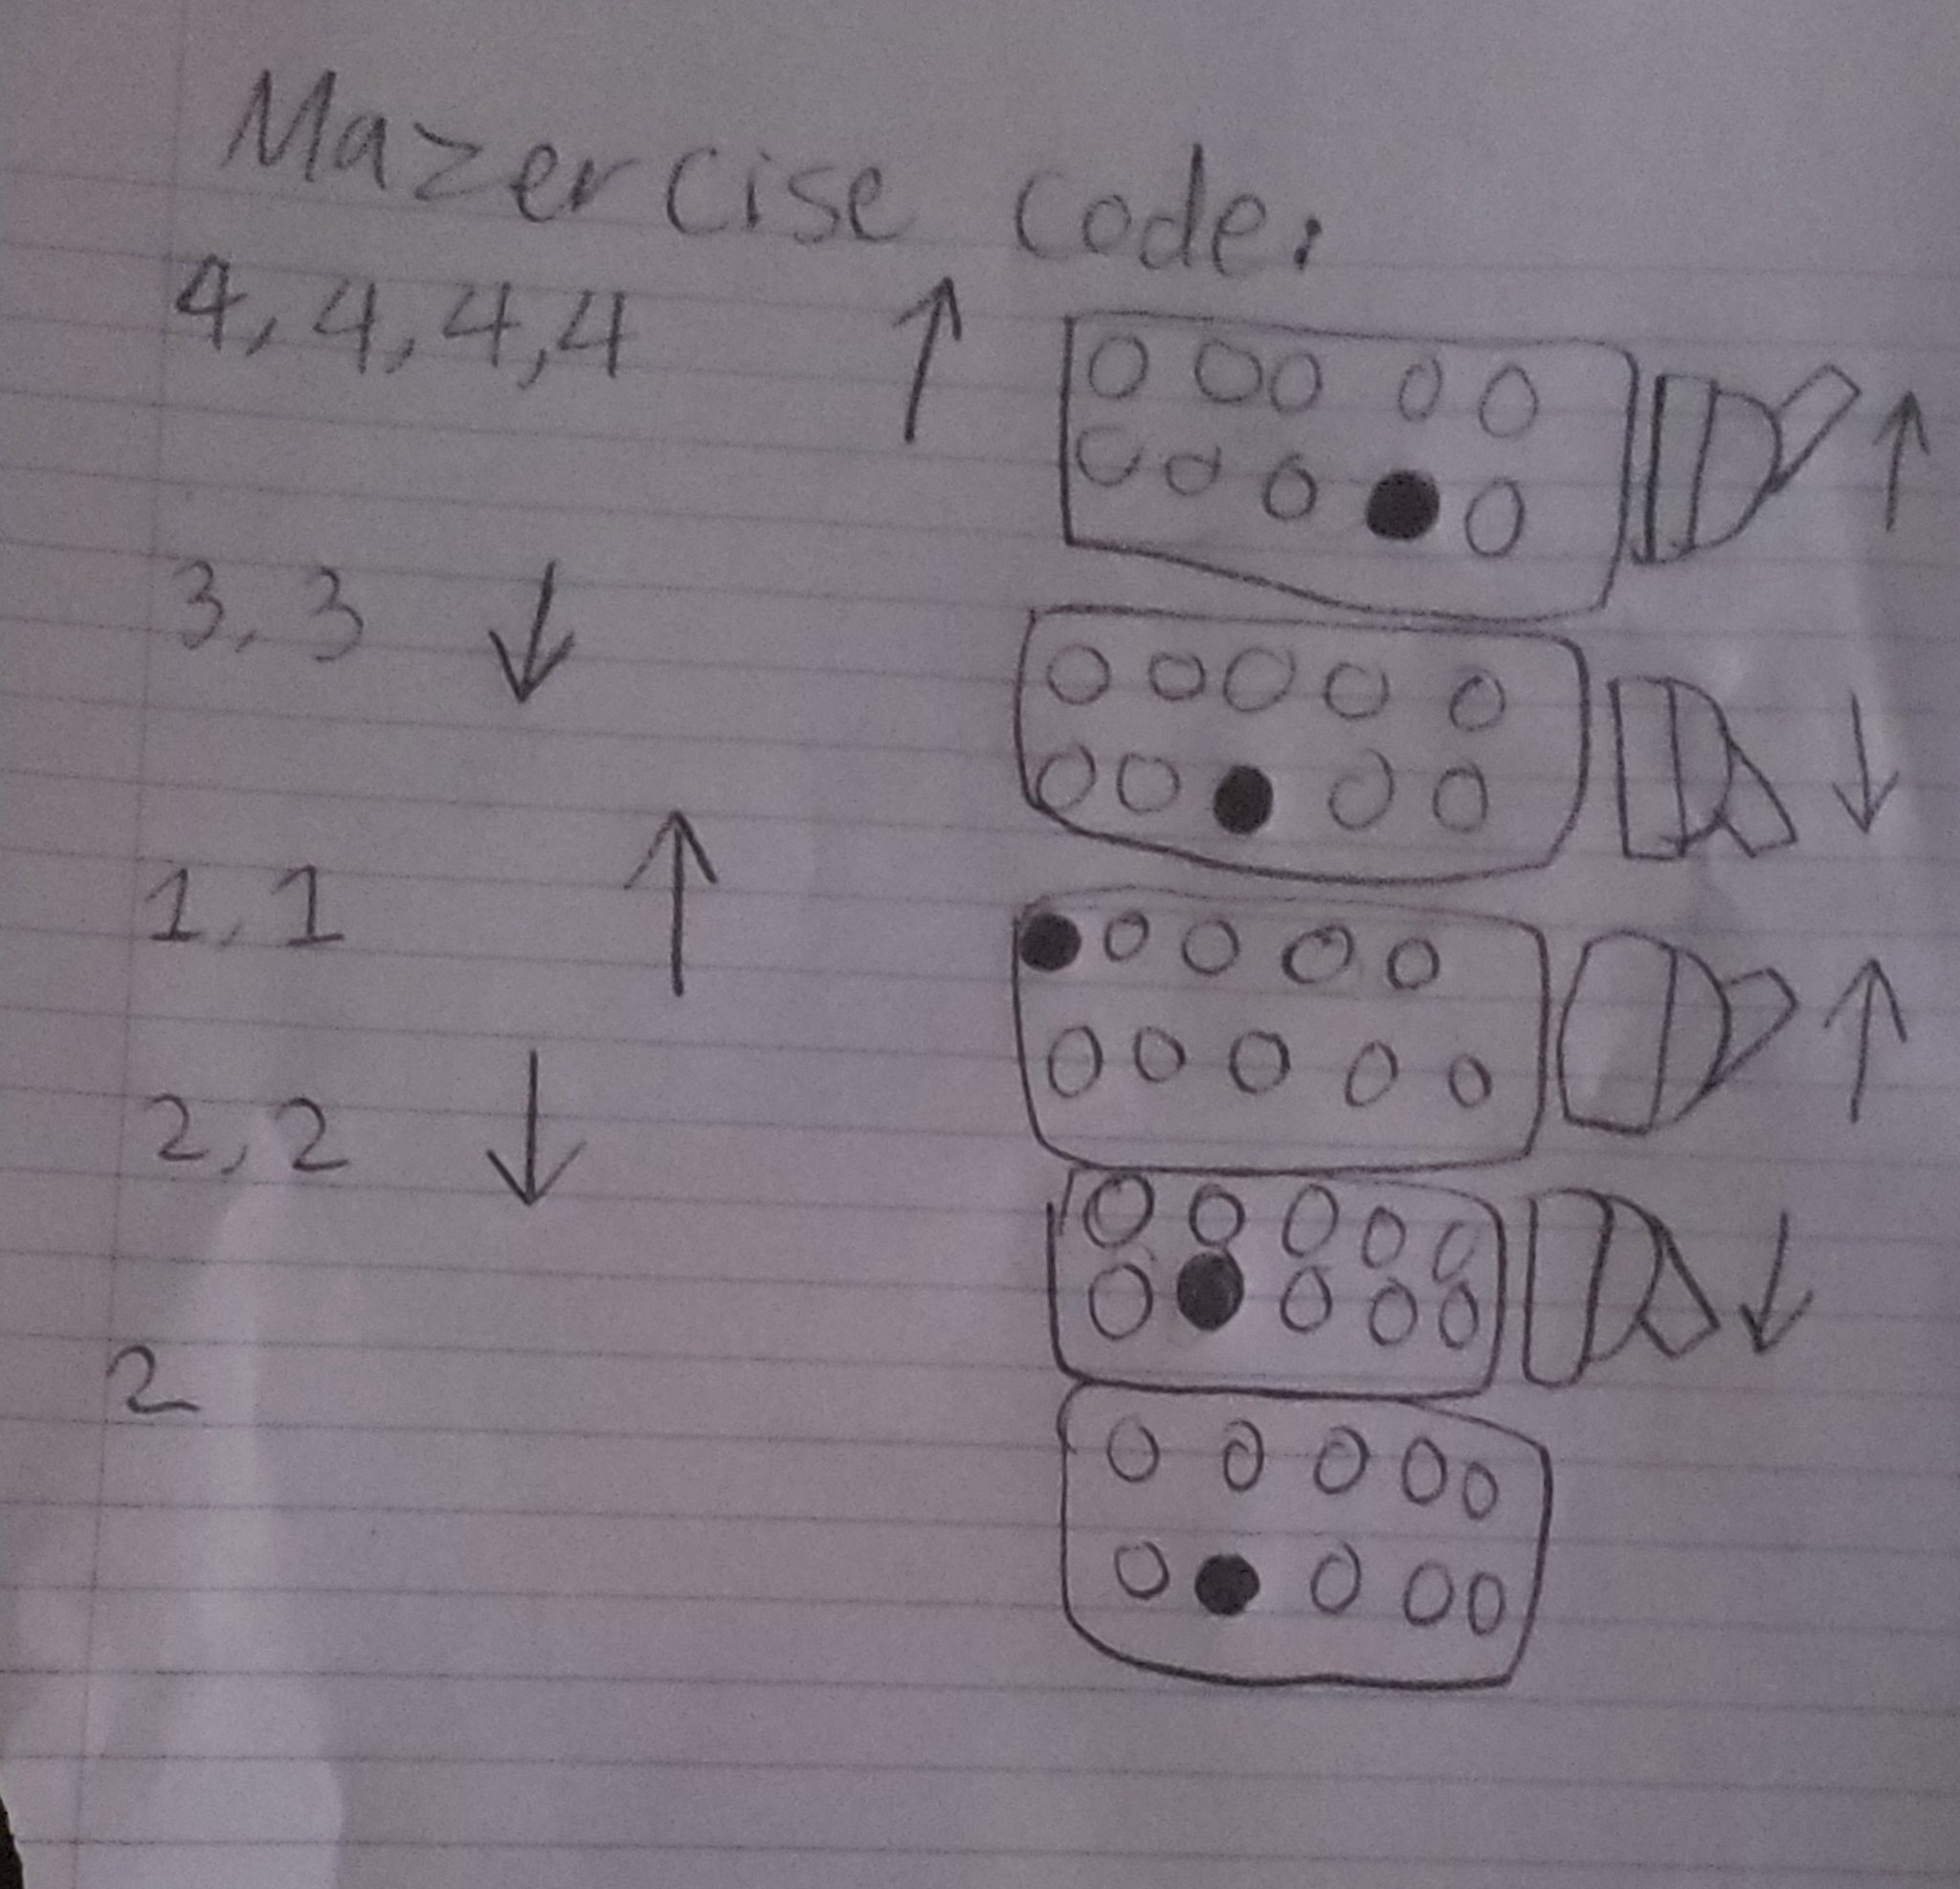 Mazercise code:
4, 4, 4, 4 ↑
3, 3 ↓
1, 1 ↑
2, 2 ↓
2